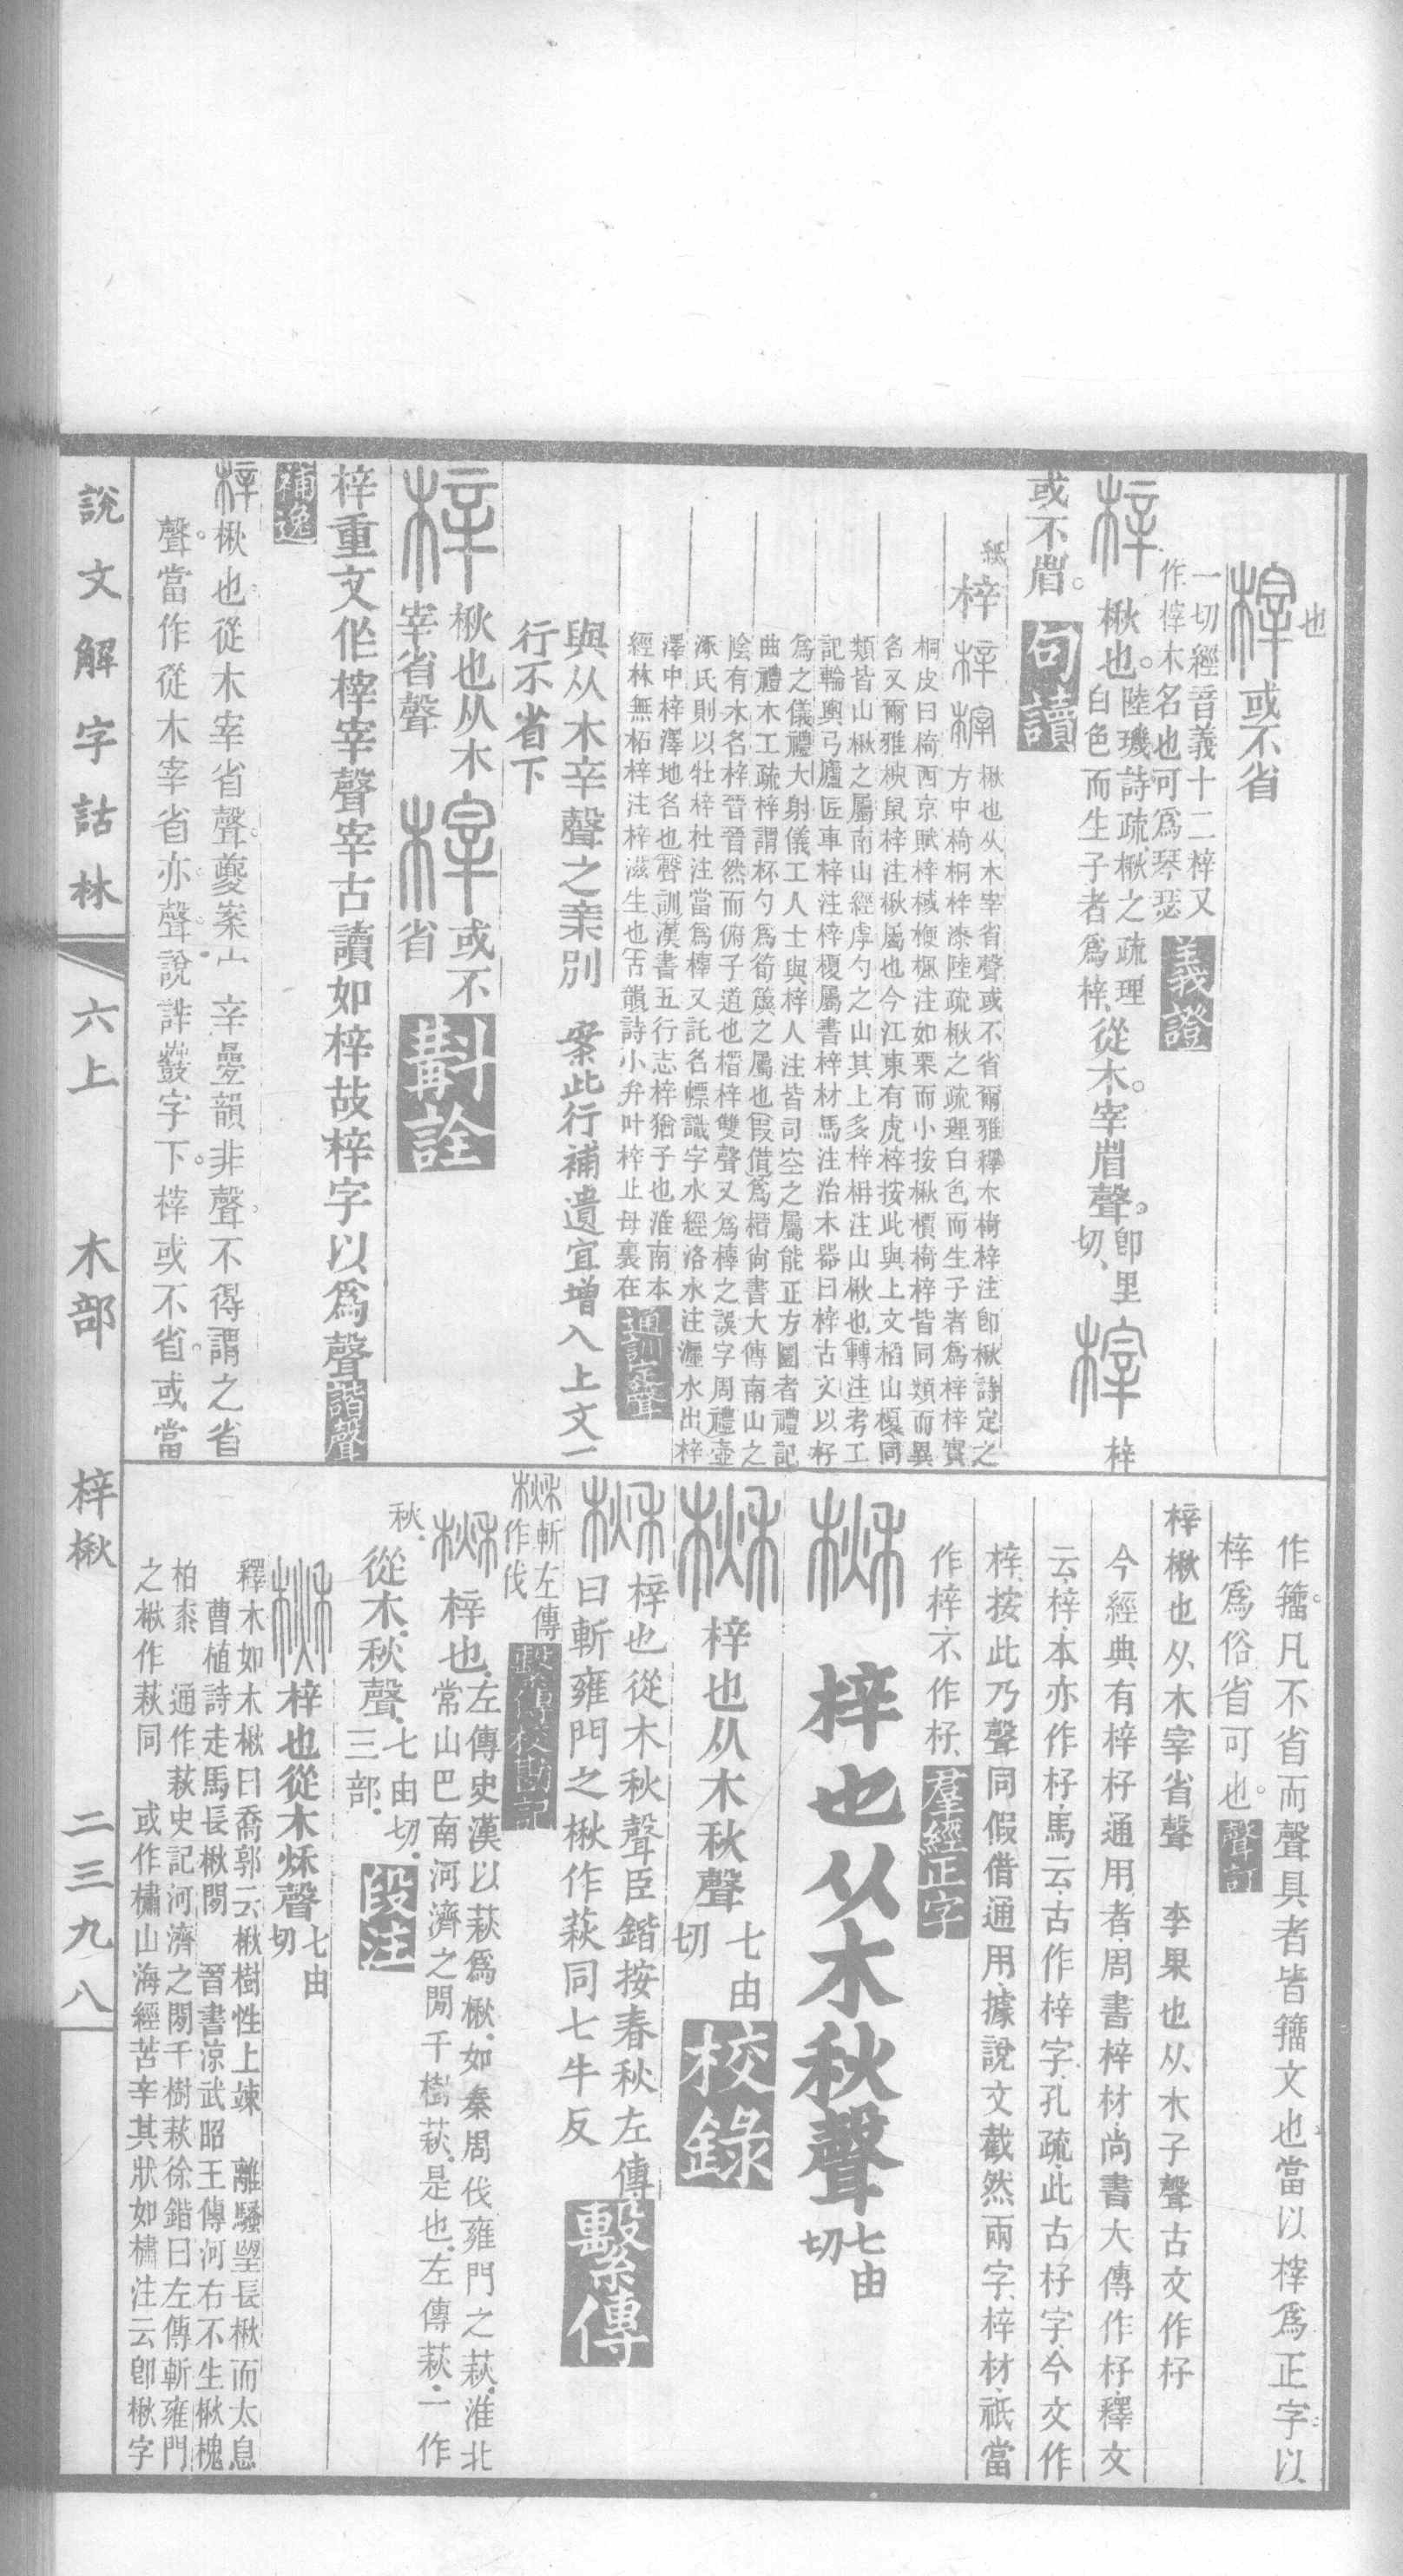 也
梓或不省
一切經音義十二梓又
作榟木名也可爲琴瑟
義證
梓楸也。
陸璣詩疏、楸之疏理
白色而生子者爲梓、
從木。宰省聲。
即里
切、
榟
梓
或不省。
句讀
紙
梓
梓榟
楸也从木宰省聲或不省爾雅釋木椅梓注即楸詩定之
方中椅桐梓漆陸疏楸之疏理白色而生子者爲梓梓實
桐皮曰椅西京賦梓棫楩楓注如栗而小按楸檟椅梓皆同類而異
名又爾雅楰鼠梓注楸屬也今江東有虎梓按此與上文槄山榎同
類皆山楸之屬南山經虖勺之山其上多梓枏注山楸也轉注考工
記輪輿弓廬匠車梓注梓榎屬書梓材馬注治木器曰梓古文以杍
爲之儀禮大射儀工人士與梓人注皆司空之屬能正方圓者禮記
曲禮木工疏梓謂杯勺爲筍簴之屬也假借爲榗尚書大傳南山之
陰有木名梓晉晉然而俯子道也榗梓雙聲又爲榟之誤字周禮壺
涿氏則以牡梓杜注當爲樟又託名幖識字水經洛水注瀍水出梓
澤中梓澤地名也聲訓漢書五行志梓猶子也淮南本
經林無柘梓注梓滋生也古韻詩小弁叶梓止母裏在
通訓定聲
與从木辛聲之亲別　案此行補遺宜增入上文一
行不省下
梓
楸也从木
宰省聲
榟
或不
省
斠詮
梓重文作榟宰聲宰古讀如梓故梓字以爲聲
諧聲
補逸
梓楸也從木宰省聲夔案宀辛疊韻非聲不得謂之省
聲當作從木宰省亦聲說詳薣字下。榟或不省。或當
說文解字詁林
六上
木部
梓楸
二三九八
作籒。凡不省而聲具者皆籒文也當以榟爲正字以
梓爲俗省可也。
聲訂
梓楸也从木宰省聲　李果也从木子聲古文作杍
今經典有梓杍通用者周書梓材、尚書大傳作杍、釋文
云、梓、本亦作杍、馬云、古作梓字、孔疏、此古杍字、今文作
梓、按此乃聲同假借通用、據說文截然兩字、梓材、祇當
作梓、不作杍、
羣經正字
楸
梓也从木秋聲
七由
切
楸
梓也从木秋聲
七由
切
校錄
楸
梓也從木秋聲臣鍇按春秋左傳
曰斬雍門之楸作萩同七牛反
繫傳
楸
斬左傳
作伐
繫傳校勘記
楸
梓也、
左傳史漢以萩爲楸、如秦周伐雍門之萩、淮北
常山巴南河濟之閒千樹萩、是也、左傳萩、一作
秋、
從木、秋聲、
七由切、
三部、
段注
楸
梓也從木秌聲
七由
切
釋木如木楸曰喬郭云楸樹性上竦　離騷望長楸而太息
曹植詩走馬長楸閒　晉書涼武昭王傳河右不生楸槐
柏桼　通作萩史記河濟之閒千樹萩徐鍇曰左傳斬雍門
之楸作萩同　或作橚山海經苦辛其狀如橚注云即楸字